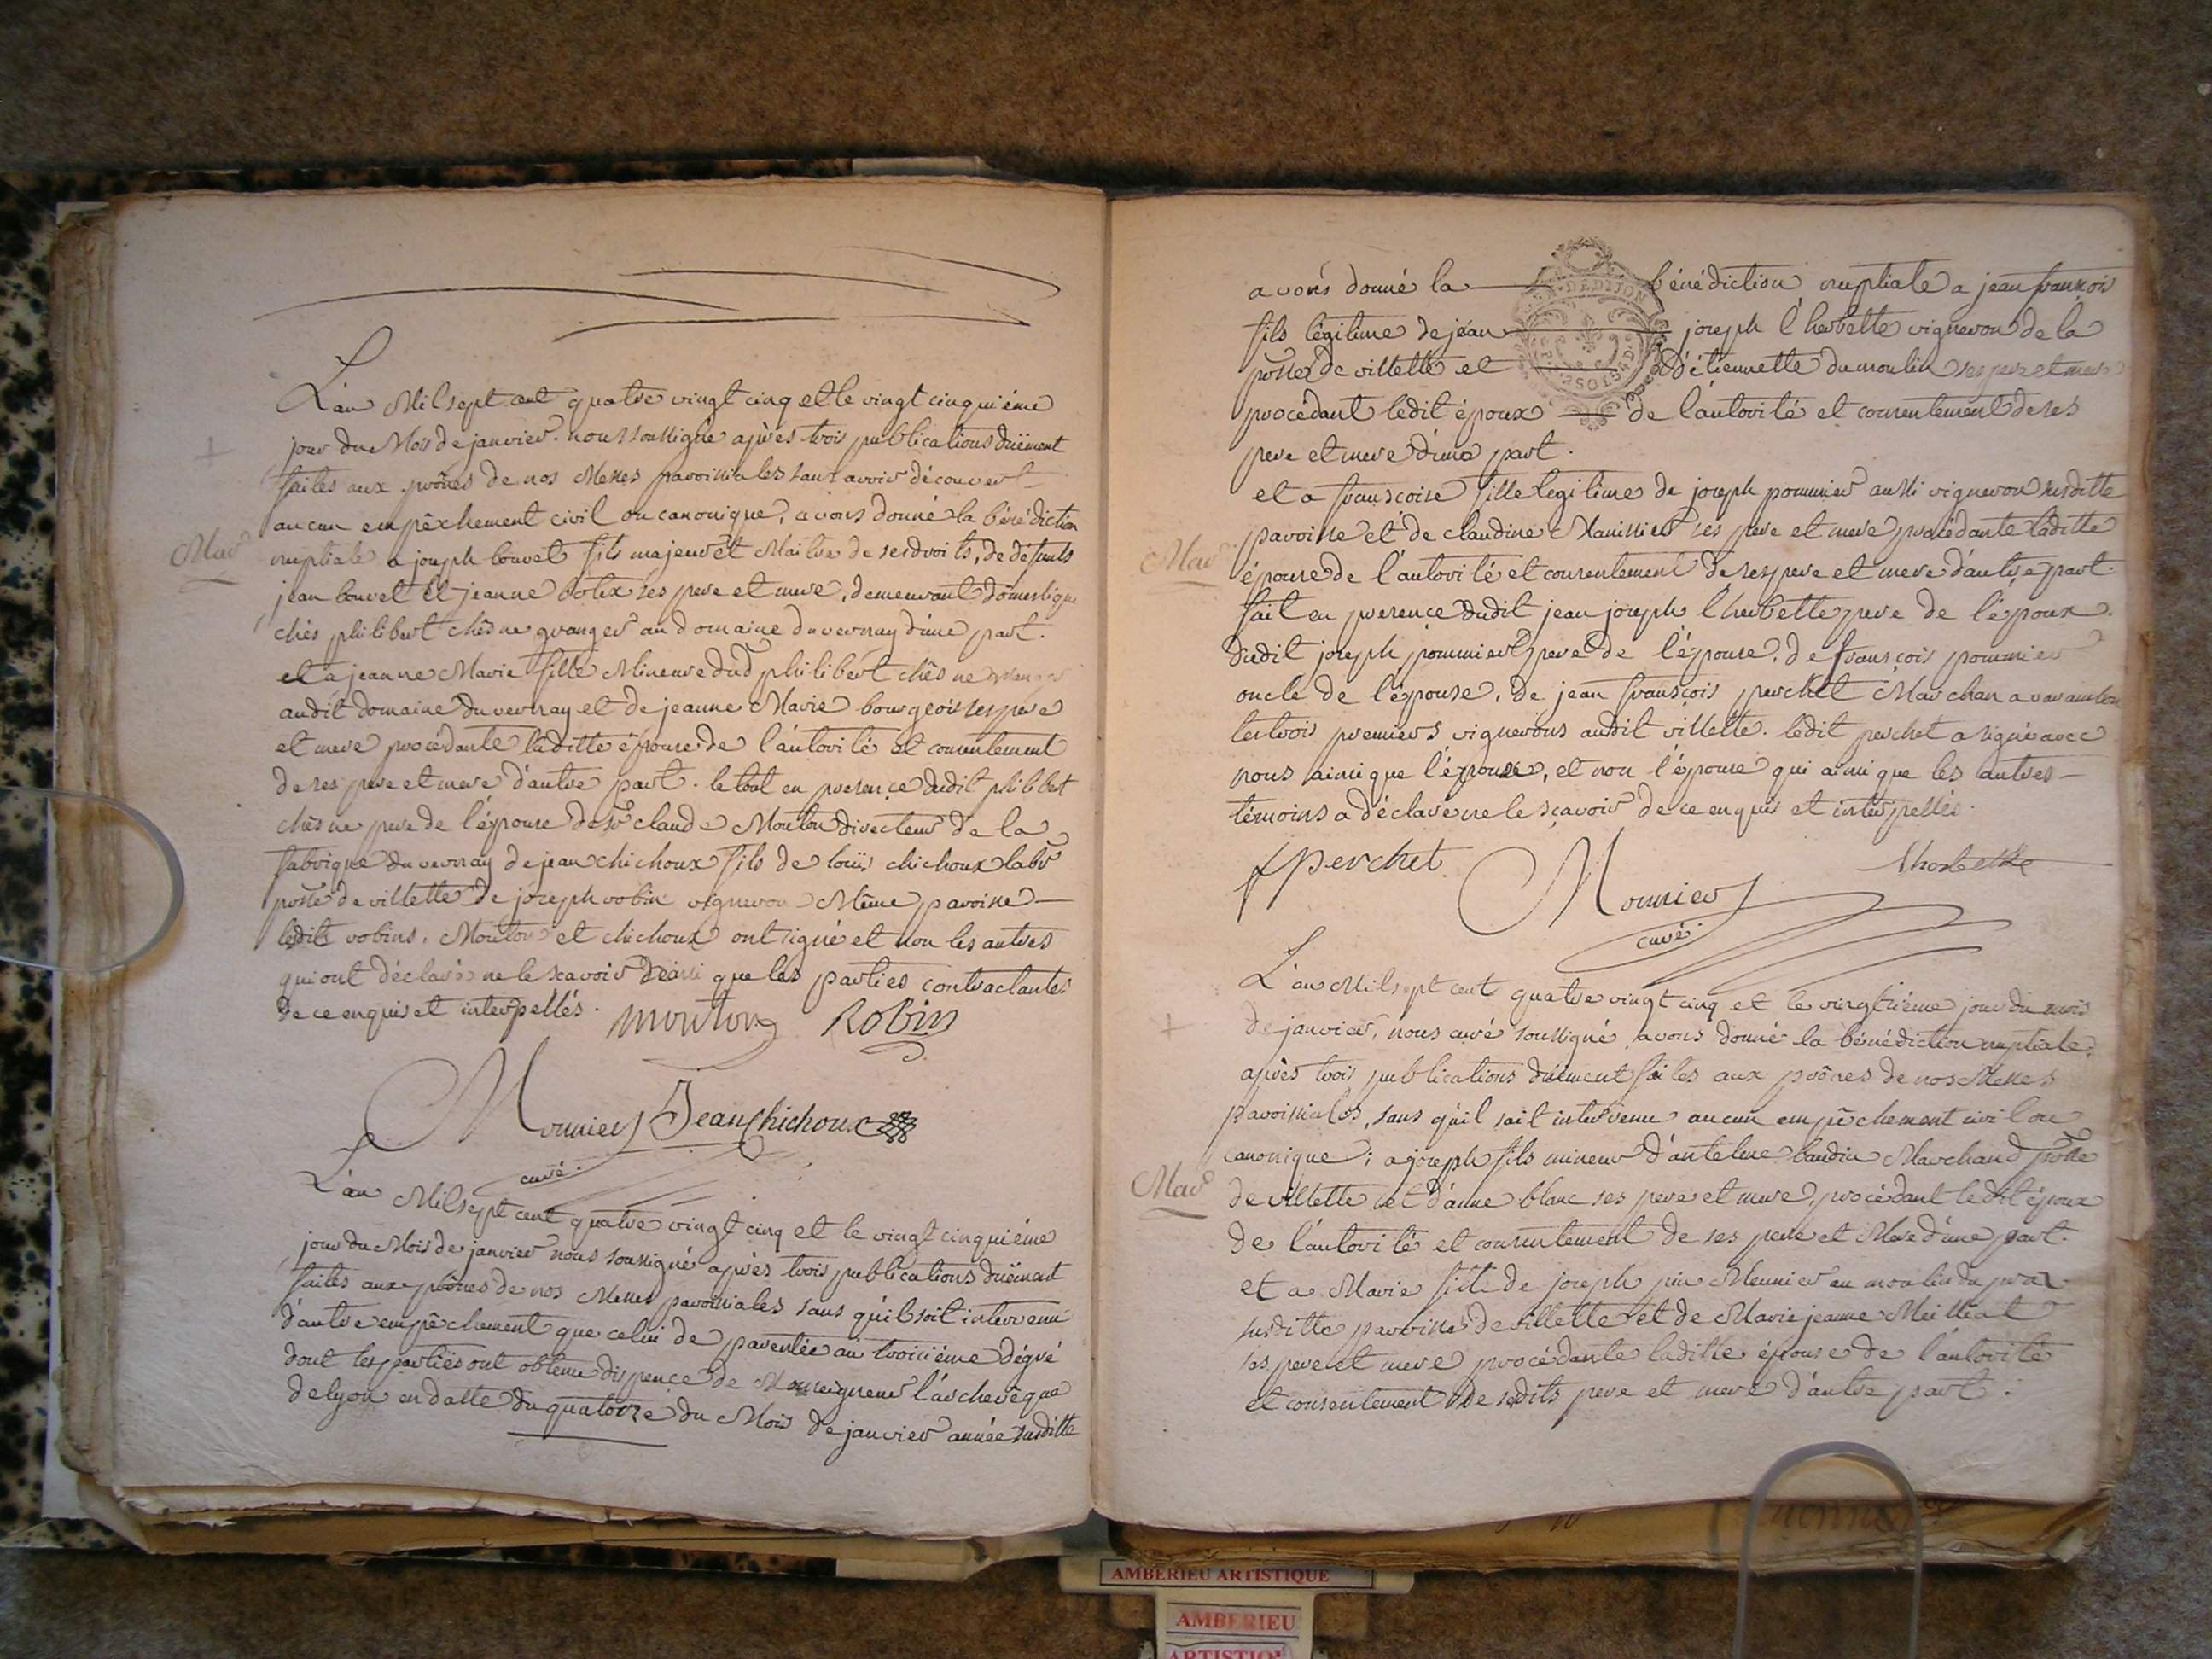 L'an Mil sept cent quatre vingt cinq et le vingt cinquiéme
jour du Mois de janvier. nous soussigné après trois publications düement
faites aux prônes de nos Messes paroissiales sans avoir découvert
aucun empêchement civil ou canonique, avons donné la bénédiction
Mar
nuptiale a joseph bouvet fils majeur et Maitre de ses droits, de défunts
jean bouvet et jeanne botex ses pere et mere, demeurant domestique
chès philibert chêsne granger au domaine du vernay d'une part.
et a jeanne Marie fille Mineure dud philibert chêsne granger
audit domaine du vernay et de jeanne Marie bourgeois ses pere
et mere procédante laditte épouse de l'autorité et consentement
de ses pere et mere d'autre part. le tout en presence dudit philibert
chêsne pere de l'épouse de sr claude Mouton directeur de la
fabrique du vernay de jean chichoux fils de loüis chichoux labr
psse de villette de joseph robin vigneron Même paroisse
lesdits robins, Mouton et chichoux ont signé et non les autres
qui ont déclaré ne le scavoir ainsi que les parties contractantes
de ce enquis et interpellés. mouton Robin
Monnier Jean chichoux
curé.
L'an Mil sept cent quatre vingt cinq et le vingt cinquiéme
jour du Mois de janvier nous soussigné après trois publications düement
faites aux prônes de nos Messes paroissiales sans qu'il soit intervenu
d'autre empêchement que celui de parentée au troisiéme dégré
dont les parties ont obtenu dispence de Monseigneur l'archevêque
de lyon en datte du quatorze du Mois de janvier année susditte
avons donné la bénédiction nuptiale a jean françois
fils légitime de jean joseph l'herbette vigneron de la
psse de villette et d'étiennette dumoulin ses pere et mere
procédant ledit époux de l'autorité et consentement de ses
pere et mere d'une part.
et a françoise fille legitime de joseph pommier aussi vigneron susditte
paroisse et de claudine ses pere et mere procédante laditte
Mar
épouse de l'autorité et consentement de ses pere et mere d'autre part.
fait en presence dudit jean joseph l'herbette pere de l'époux.
dudit joseph pommier pere de l'épouse, de françois pommier
oncle de l'épouse, de jean françois perchet Marchan a varambon
les trois premiers vignerons audit villette. ledit perchet a signé avec
nous ainsi que l'époux, et non l'épouse qui ainsi que les autres
témoins a déclaré ne le sçavoir de ce enquis et interpellés.
f perchet Monnier lherbette
curé.
L'an Mil sept cent quatre vingt cinq et le vingtiéme jour du mois
de janvier, nous curé soussigné avons donné la bénédiction nuptiale,
après trois publications düement faites aux prônes de nos Messes
paroissiales, sans qu'il soit intervenu aucun empêchement civil ou
canonique; a joseph fils mineur d'antelme baudin Marchand psse
Mar
de villette et d'anne blanc ses pere et mere, procédant ledit époux
de l'autorité et consentement de ses pere et Mere d'une part.
et a Marie fille de joseph pin Meunier au moulin du
susditte paroisse de villette et de Marie jeanne Meilleat
ses pere et mere procédante laditte épouse de l'autorité
et consentement de sesdits pere et mere d'autre part.
AMBERIEU ARTISTIQUE
AMBERIEU
ARTISTIQUE